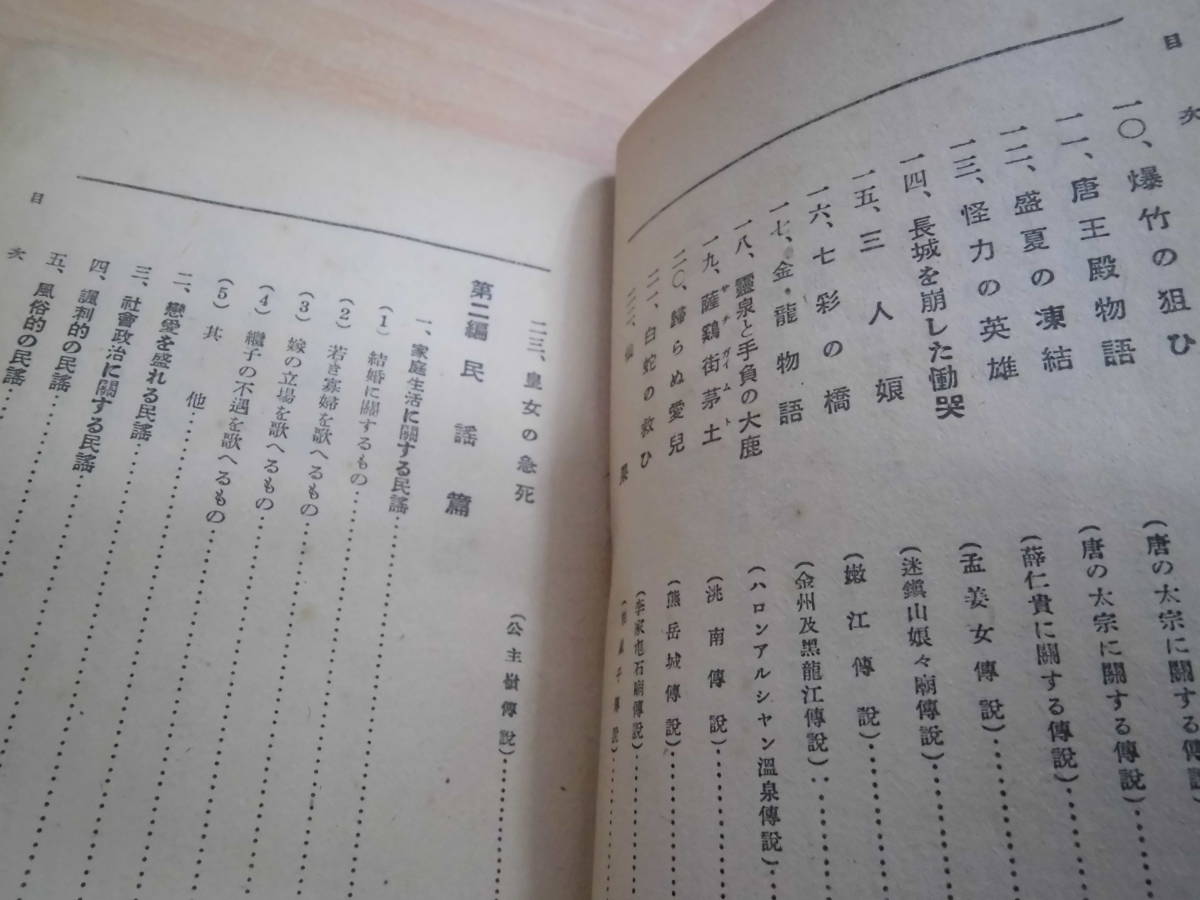 目次
一〇、爆竹の狙ひ
一一、唐王殿物語 (唐の太宗に關する傳說)
一二、盛夏の凍結 (唐の太宗に關する傳說)
一三、怪力の英雄 (薛仁貴に關する傳說)
一四、長城を崩した慟哭 (孟姜女傳說)
一五、三人娘 (迷鎭山娘々廟傳說)
一六、七彩の橋 (嫩江傳說)
一七、金龍物語 (金州及黑龍江傳說)
一八、靈泉と手負の大鹿 (ハロンアルシャン溫泉傳說)
一九、薩鷄街茅土 (洮南傳說)
二〇、歸らぬ愛兒 (熊岳城傳說)
二一、白蛇の救ひ (李家屯石廟傳說)
二二、仙
二三、皇女の急死 (公主樹傳說)
第二編 民謠篇
一、家庭生活に關する民謠
(1) 結婚に關するもの
(2) 若き寡婦を歌へるもの
(3) 嫁の立場を歌へるもの
(4) 繼子の不遇を歌へるもの
(5) 其他
二、戀愛を盛れる民謠
三、社會政治に關する民謠
四、諷刺的の民謠
五、風俗的の民謠
目次